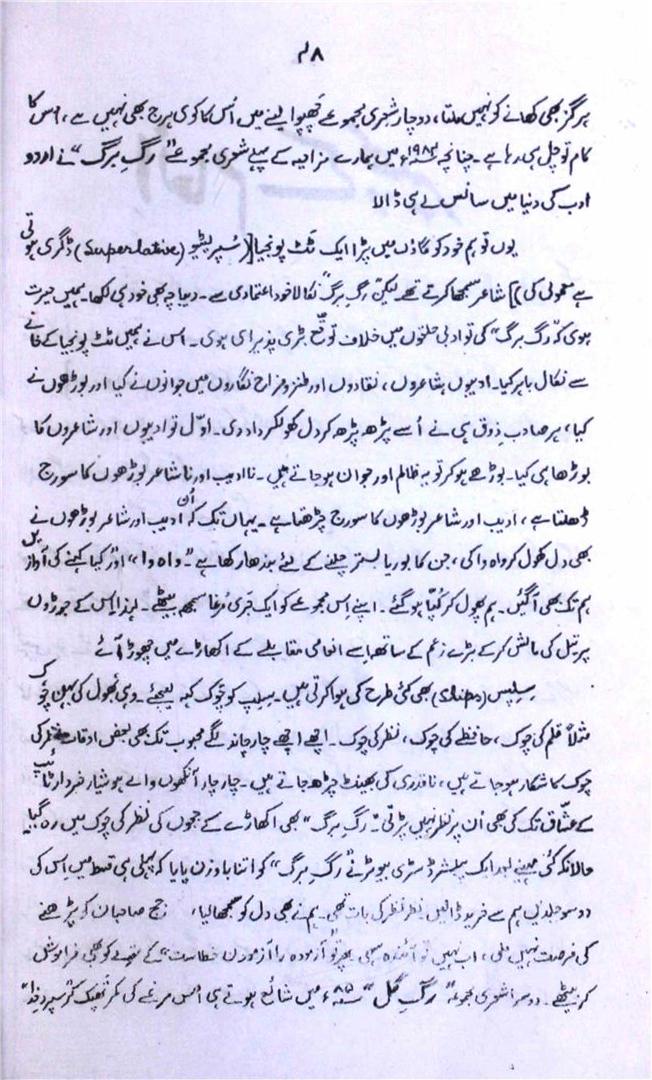 ۴۸
ہرگز بھی کھانے کو نہیں ملتا، دو چار شعری مجموعے چھپوا لینے میں اُس کا کوئی ہرج بھی نہیں ہے، اس کا
کام تو چل ہی رہا ہے۔ چنانچہ ۱۹۸۳ء میں ہمارے مزاحیہ کے پہلے شعری مجموعے "رگِ برگ" نے اردو
ادب کی دنیا میں سانس لے ہی ڈالا
یوں تو ہم خود کو گاؤں میں پڑا ایک ٹٹ پونجیا [(سُپر لیٹیو (Superlative) ڈگری ہوتی
ہے معمولی کی)] شاعر سمجھا کرتے تھے لیکن "رگِ برگ" نکالا خود اعتمادی سے۔ دیباچہ بھی خود ہی لکھا۔ ہمیں حیرت
ہوی کہ "رگ برگ" کی تو ادبی حلقوں میں خلاف توقع بڑی پذیرای ہوی۔ اس نے ہمیں ٹٹ پونجیا کے خانے
سے نکال باہر کیا۔ ادیبوں، شاعروں، نقادوں اور طنز و مزاح نگاروں میں جوانوں نے کیا اور بوڑھوں نے
کیا، ہر صاحب ذوق ہی نے اُسے پڑھ پڑھ کر دل کھولکر داد دی۔ اوّل تو ادیبوں اور شاعروں کا
بوڑھا ہی کیا۔ بوڑھے ہو کر تو یہ ظالم اور جوان ہو جاتے ہیں۔ نا ادیب اور نا شاعر بوڑھوں کا سورج
ڈھلتا ہے، ادیب اور شاعر بوڑھوں کا سورج چڑھتا ہے۔ یہاں تک کہ اُن ادیب اور شاعر بوڑھوں نے
بھی دل کھول کر واہ وا کی، جن کا بوریا بستر چلنے کے لئے بندھا رکھا ہے۔ "واہ وا"، اور "کیا کہنے کی آواز
ہم تک بھی آ گئیں۔ ہم پھول کر کُپّا ہو گئے۔ اپنے اِس مجموعے کو ایک جَری مُرغا سمجھ بیٹھے۔ لہٰذا اِس کے جوڑوں
پر تیل کی مالش کر کے بڑے زعم کے ساتھ اسے انعامی مقابلے کے اکھاڑے میں چھوڑ آئے
سِلپس (Slips) بھی کئی طرح کی ہوا کرتی ہیں۔ سِلپ کو چُوک کہہ لیجئے۔ وہی بُھول کی بہن چُوک
مثلاً قلم کی چوک، حافظے کی چوک، نظر کی چوک۔ اچھے اچھے چار چاند لگے محبوب تک بھی بعض اوقات نظر کی
چوک کا شکار ہو جاتے ہیں، ناقدری کی بھینٹ چڑھ جاتے ہیں۔ چار چار آنکھوں والے ہوشیار خبردار ٹائپ
کے عشّاق تک کی بھی اُن پر نظر نہیں پڑتی۔ "رگِ برگ" بھی اکھاڑے کے ججوں کی نظر کی چوک میں رہ گیا
حالانکہ کئی مہینے بعد ایک پبلشر ڈسٹری بیوٹر نے "رگِ برگ" کو اتنا با وزن پایا کہ پہلی ہی قسط میں اِس کی
دو سو جلدیں ہم سے خرید ڈالیں نظر نظر کی بات تھی۔ ہم نے بھی دل کو سمجھا لیا، جج صاحبان کو پڑھنے
کی فرصت نہیں ملی، اب نہیں تو آئندہ سہی پھر تو "آزمودہ را آزمودن خطاست" کے کو بھی فراموش
کر بیٹھے۔ دوسرا شعری مجموعہ "رگِ گُل" ۸۵ء میں شائع ہوتے ہی اُس مرغے کی کمر ٹھیک کر "سپردِ خدا"